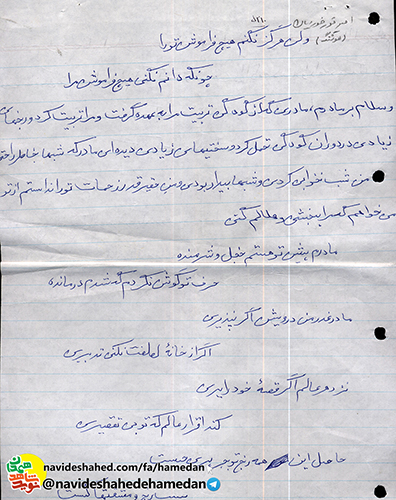 ولی هرگز نکنم هیچ فراموش تورا
چونکه دانم نکنی هیچ فراموش مرا
و سلام بر مادرم، مادری که از کودکی تربیت مرا به عهده گرفت و مرا تربیت کرد و زحمات
زیادی در دوران کودکی تحمل کرد و سختیهای زیادی دیده ای مادر که شبها بخاطر راحتی
من شب نخوابی کردی و شبها بیدار بودی و من فقیر قدر زحمات تو را ندانستم از تو
می خواهم که مرا ببخشی و حلالم کنی
مادرم پیش تو هستم خجل و شرمنده
حرف تو گوش نکردم که شدم درمانده
مادر عذر من درویش اگر نپذیری
اگر از خانه لطفت نکنی تدبیری
نزد هر عالم اگر قصه خود
کند اقرار عالم که تو بی تقصیری
حاصل این همه رنج تو چیست
navideshahed.com/fa/hamedan
@navideshahedehamedan